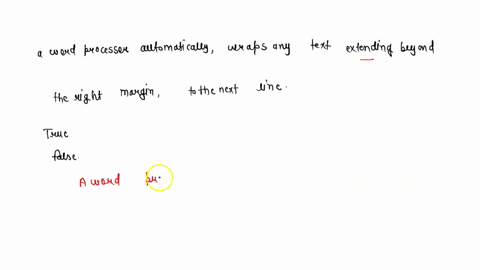 a word processer automatically, wraps any text extending beyond
the right margin, to the next line.
True
false
A word pr